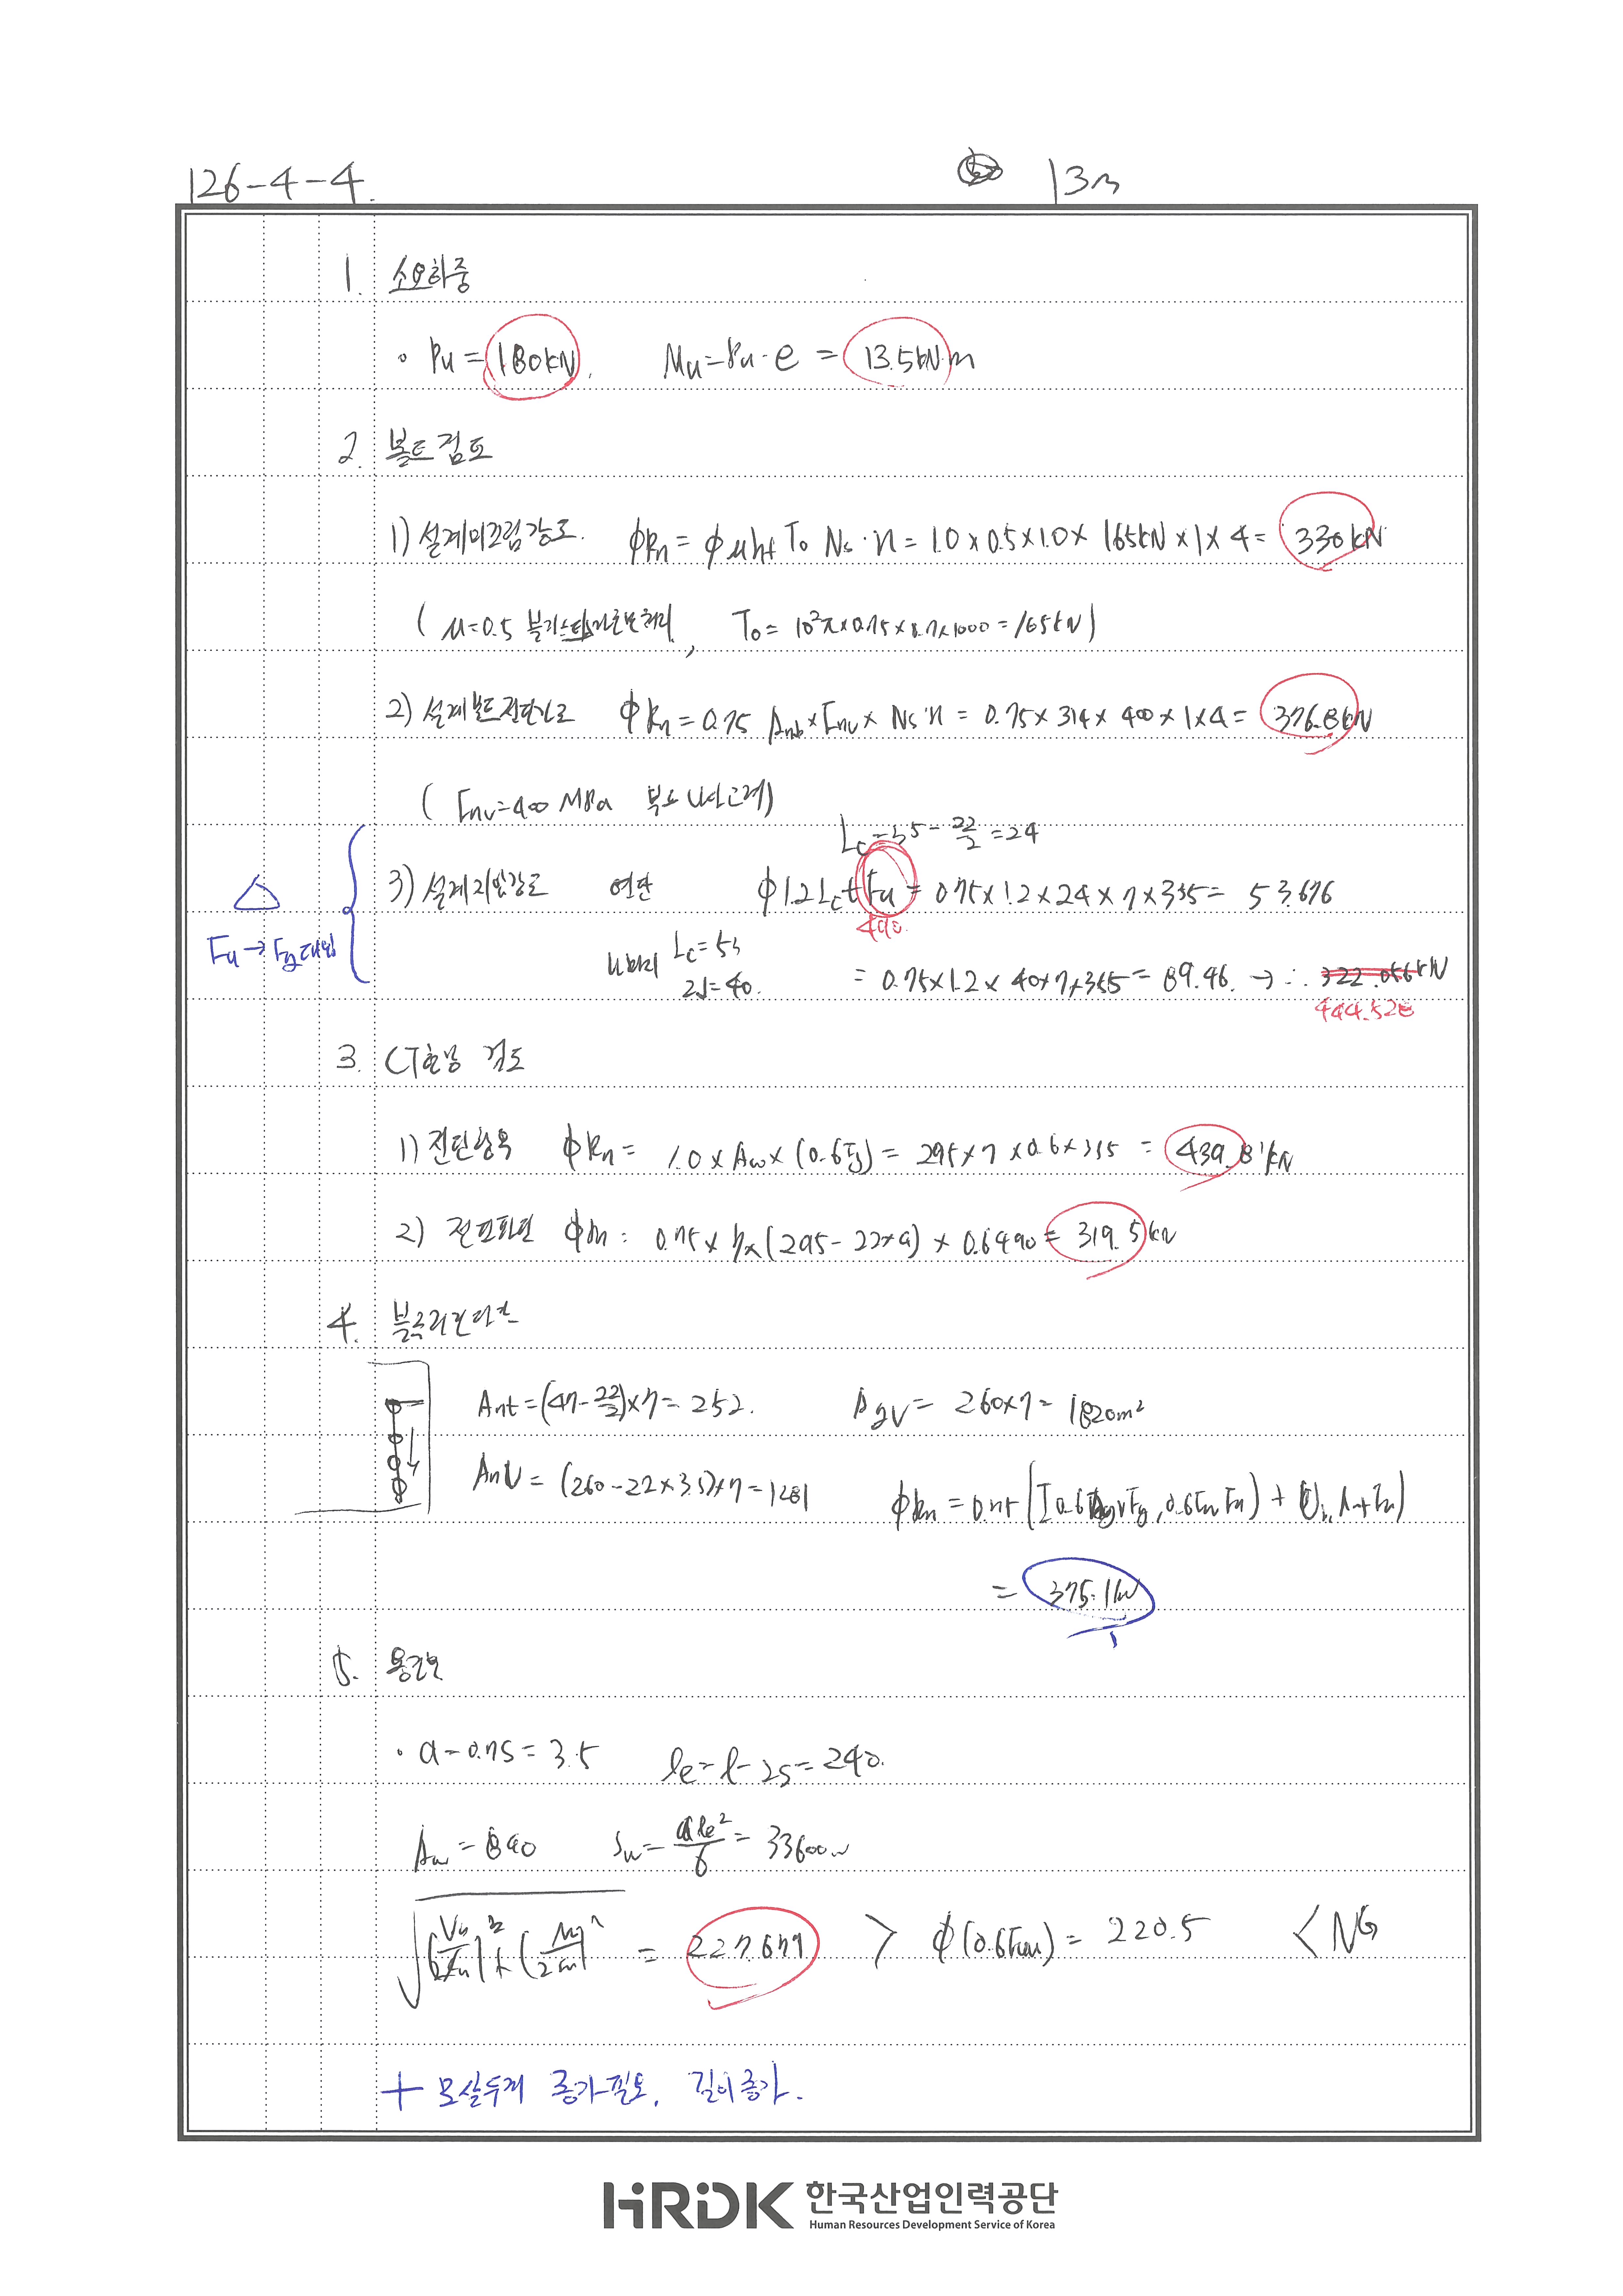 126-4-4.
13m
1. 소요하중
∘ Pu = 180kN. Mu = Pu·e = 13.5kN m
2. 볼트 검토
1) 설계미끄럼강도. ϕRn = ϕ μ hf To Ns·n = 1.0 × 0.5 × 1.0 × 165kN × 1 × 4 = 330kN
( μ=0.5 블라스트 , To = 10²π×0.75×0.7×1000 = 165kN )
2) 설계볼트전단강도 ϕRn = 0.75 Anb × Fnv × Ns·n = 0.75 × 314 × 400 × 1 × 4 = 376.8kN
( Fnv=400 MPa )
Lc = 35 - 22/2 = 24
3) 설계지압강도 연단 ϕ1.2 Lc t Fu = 0.75 × 1.2 × 24 × 7 × 355 = 53.676
490.
△
Fu → Fy 대입
나머지 Lc = 53
2d = 40.
= 0.75 × 1.2 × 40 × 7 × 355 = 89.46. → ∴ 322.056kN
444.528
3. CT형강 검토
1) 전단항복 ϕRn = 1.0 × Aw × (0.6Fy) = 295 × 7 × 0.6 × 355 = 439.81kN
2) 전단파단 ϕRn : 0.75 × 7 × (295 - 22×4) × 0.6 490 = 319.5kN
4. 블록전단
Ant = (47 - 22/2) × 7 = 252. Agv = 260×7 = 1820m²
Anv = (260 - 22 × 3.5) × 7 = 1281 ϕRn = 0.75 ([0.6AgvFy, 0.6 Fu) + Ubs Ant Fu)
= 375.1kN
5. 용접부
· a = 0.7S = 3.5 le = l - 2S = 240.
Aw = 840 Sw = a le²/6 = 33600
√(Vu/2Aw)² + (Mu/2Sw)² = 227.677 > ϕ(0.6Fuw) = 220.5 < NG
+ 모살두께 증가 필요, 길이 증가.
HRDK 한국산업인력공단
Human Resources Development Service of Korea